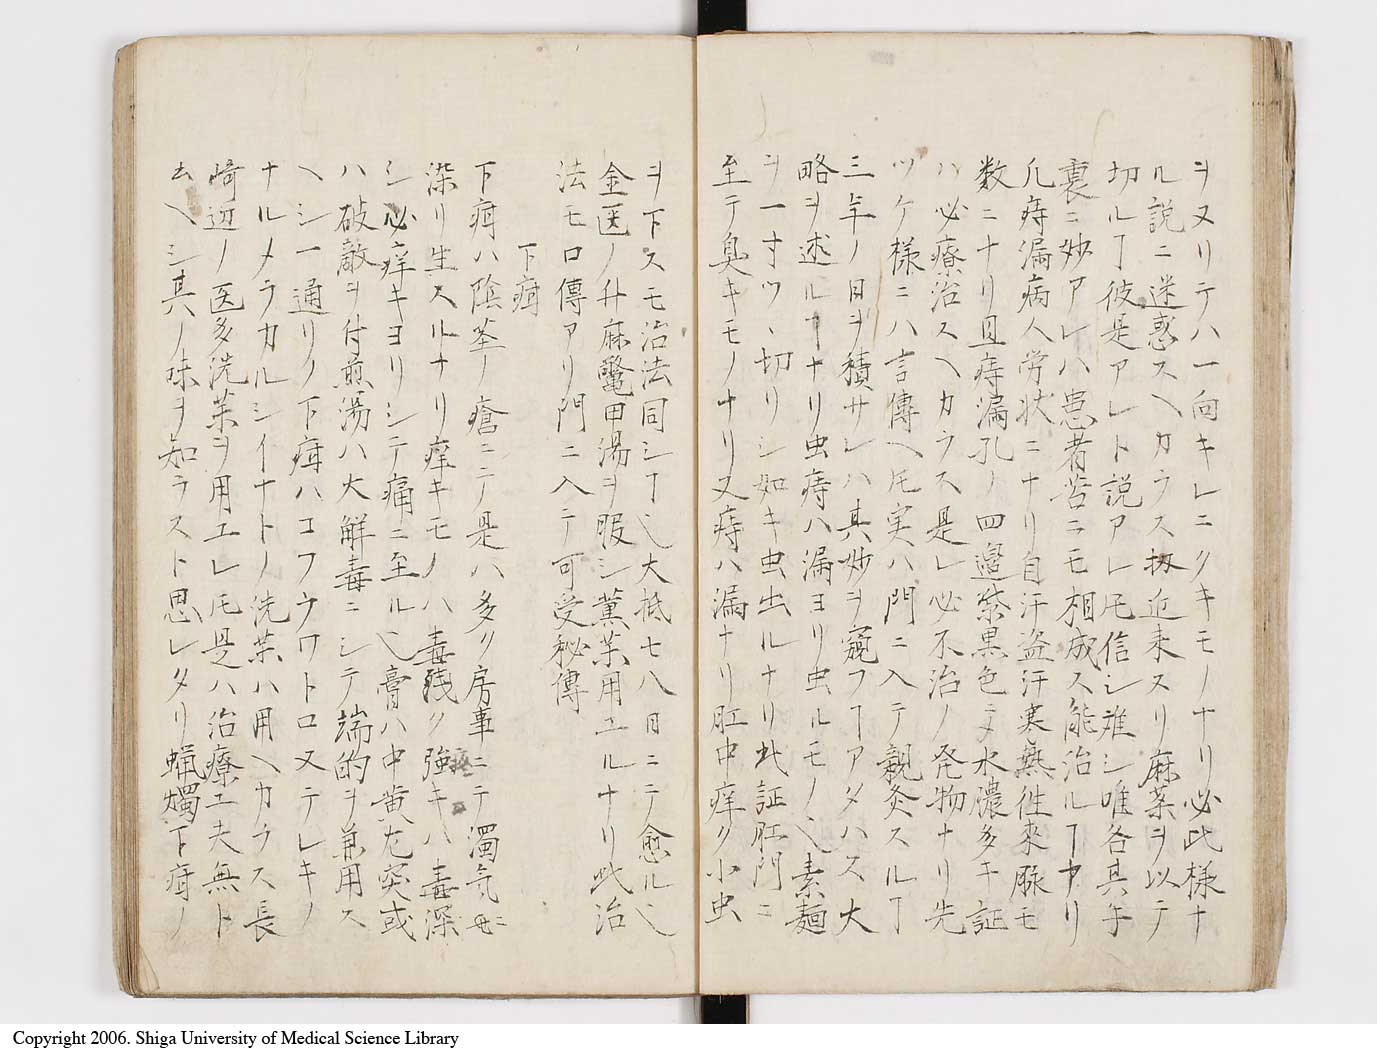 ヲヌリテハ一向キレニクキモノナリ必此様ナ
ル説ニ迷惑スヘカラス扨近来スリ麻薬ヲ以テ
切ルヿ彼是アレト説アレ𪜈信シ難シ唯各其手
裏ニ妙アレハ患者苦ニモ相成ス能治ルヿナリ
凡痔漏病人労状ニナリ自汗盗汗寒熱往來脈モ
数ニナリ且痔漏孔ノ四邉紫黒色ニテ水膿多キ証
ハ必療治スヘカラス是レ必不治ノ発物ナリ先
ツケ様ニハ言傳ヘ𪜈実ハ門ニ入テ親灸スルヿ
三年ノ日ヲ積サレハ其妙ヲ窺フヿアタハス大
略ヲ述ルナリ虫痔ハ漏ヨリ虫ルモノ也素麺
ヲ一寸ツヽ切リシ如キ虫出ルナリ此証肛門ニ
至テ臭キモノナリ又痔ハ漏ナリ肛中痒ク小虫
ヲ下スモ治法同シヿ也大抵七八日ニテ愈ル也
金匱ノ升麻鼈甲湯ヲ服シ薫薬用ユルナリ此治
法モ口傳アリ門ニ入テ可受秘傳
下疳
下疳ハ陰莖ノ瘡ニ〆是ハ多ク房事ニテ濁気ニ
染リ生スルナリ痒キモノハ毒浅ク強キハ毒深
シ必痒キヨリシテ痛ニ至ル也膏ハ中黄尤突或
ハ破敵ヲ付煎湯ハ大解毒ニシテ端的ヲ兼用ス
ヘシ一通リノ下疳ハコフウワトロヌテレキノ
ナルメラカルシイナトノ洗薬ハ用ヘカラス長
崎辺ノ医多洗薬ヲ用ユレ𪜈是ハ治療工夫無ト
云ヘシ其ノ味ヲ知ラスト思レタリ蝋燭下疳ノ